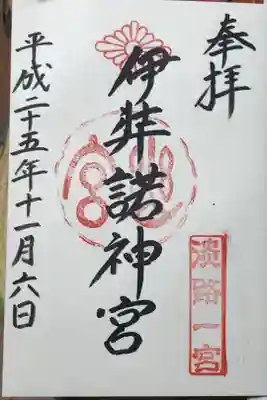 奉拝
伊弉諾神宮
淡路一宮
平成二十五年十一月六日